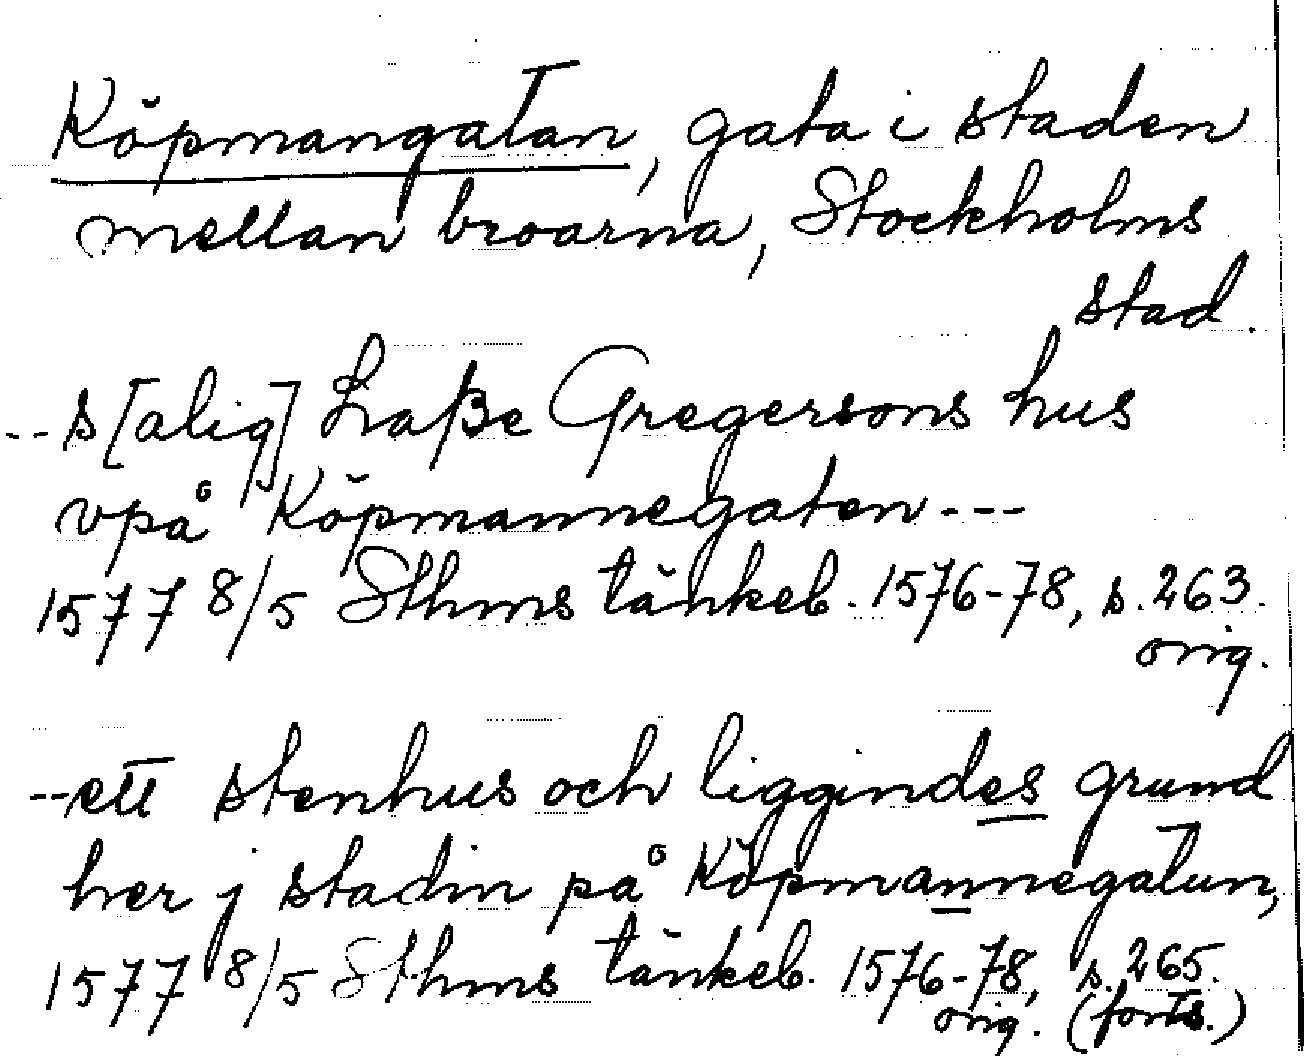 Köpmangatan, gata i staden
mellan broarna, Stockholms
stad.
-- s[alig] Laße Gregersons hus
vpå Köpmannegaten ---
1577 8/5 Sthms tänkeb. 1576-78, s. 263.
orig.
-- ett stenhus och liggindes grund
her j stadin på Köpmannegatun,
1577 8/5 Sthms tänkeb. 1576-78, s. 265.
orig. (forts.)